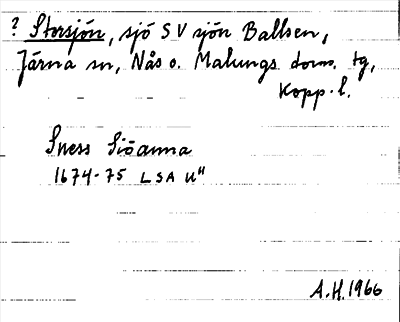 ? Storsjön, sjö SV sjön Ballsen,
Järna sn, Nås o. Malungs doms. tg,
Kopp. l.
Sness Siöanna
1674-75 LSA U"
A.H. 1966